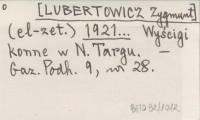 [LUBERTOWICZ Zygmunt]
(el-zet.) 1921... Wyścigi
konne w N. Targu. –
Gaz. Podh. 9, nr 28.